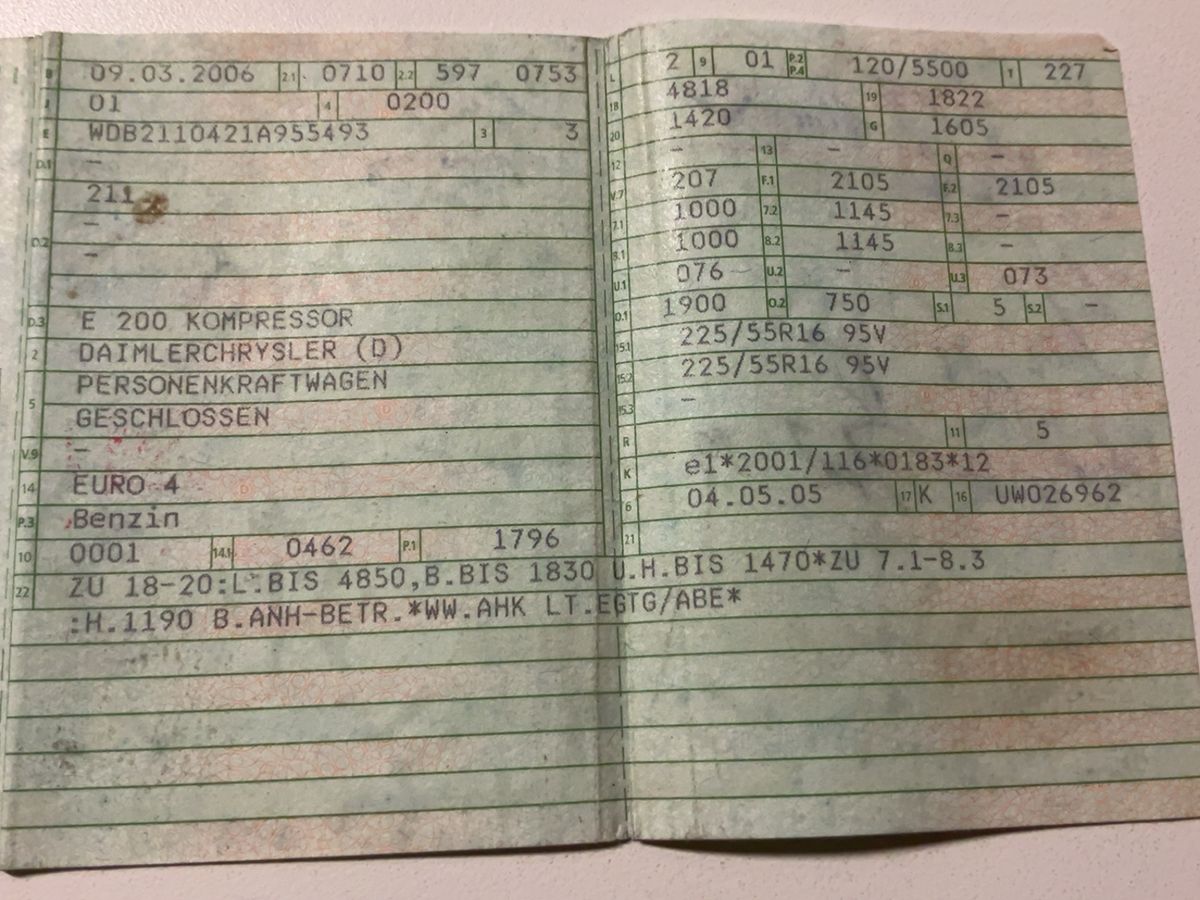 B 09.03.2006 2.1 0710 2.2 597 0753
J 01 4 0200
E WDB2110421A955493 3 3
D.1 -
211
D.2 -
-
D.3 E 200 KOMPRESSOR
2 DAIMLERCHRYSLER (D)
5 PERSONENKRAFTWAGEN
GESCHLOSSEN
V.9 -
14 EURO 4
P.3 Benzin
10 0001 14.1 0462 P.1 1796
22 ZU 18-20:L.BIS 4850,B.BIS 1830 U.H.BIS 1470*ZU 7.1-8.3
:H.1190 B.ANH-BETR.*WW.AHK LT.EGTG/ABE*
L 2 9 01 P.2 P.4 120/5500 T 227
18 4818 19 1822
20 1420 G 1605
12 - 13 - Q -
V.7 207 F.1 2105 F.2 2105
7.1 1000 7.2 1145 7.3 -
8.1 1000 8.2 1145 8.3 -
U.1 076 U.2 - U.3 073
O.1 1900 O.2 750 S.1 5 S.2 -
15.1 225/55R16 95V
15.2 225/55R16 95V
15.3 -
R 11 5
K e1*2001/116*0183*12
6 04.05.05 17 K 16 UW026962
21